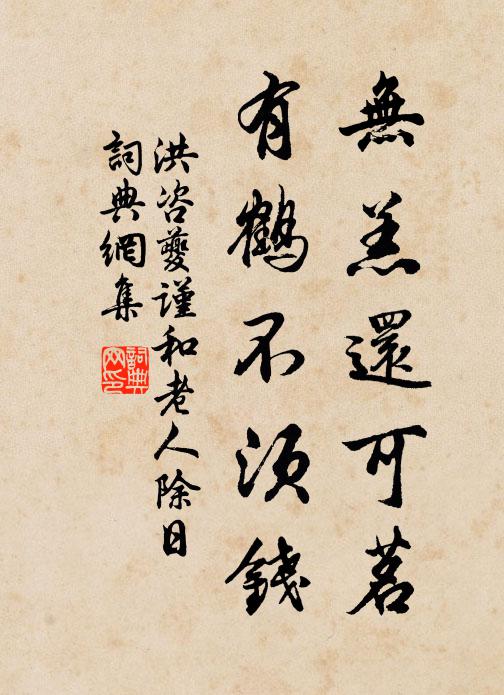 無羔還可茗
有鶴不須錢
洪咨夔謹和老人除日
詞典網集
詞典網印